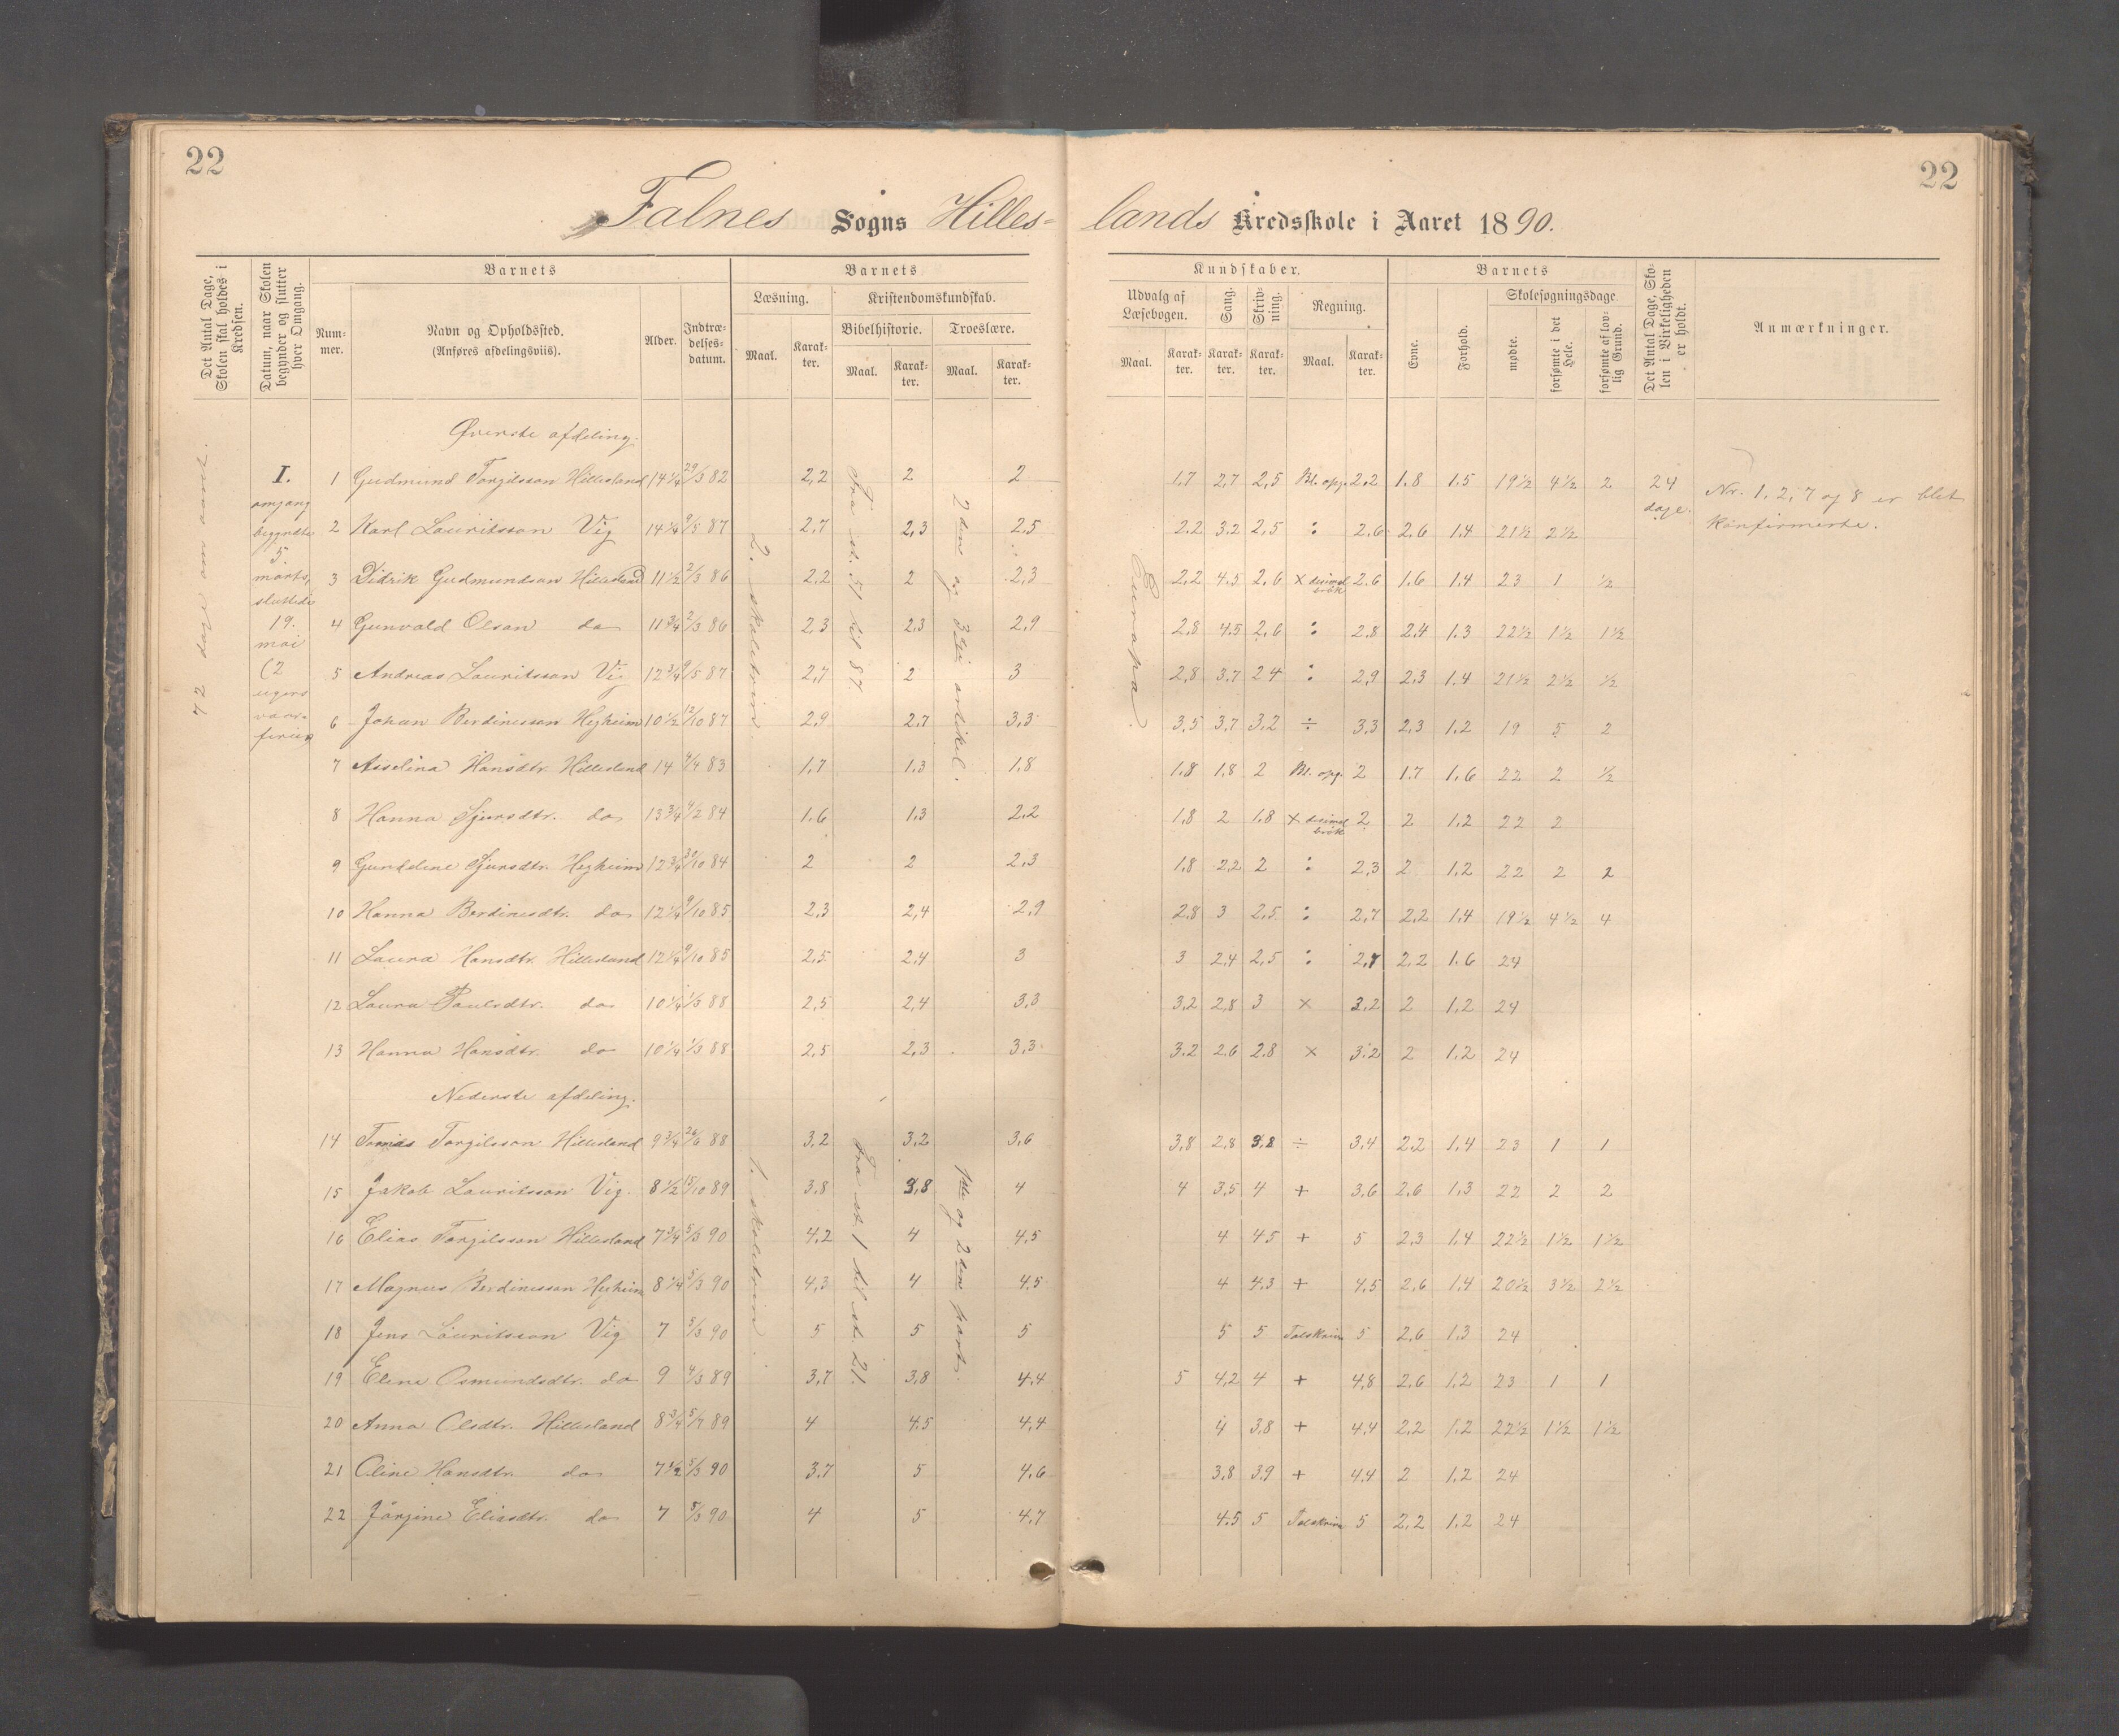 22
22
Falnes Sogns Hilles-
lands Kredsskole i Aaret 1890.
Det Antal Dage, Skolen skal holdes i Kredsen.
Datum, naar Skolen begynder og slutter hver Omgang.
Barnets
Num-
mer.
Navn og Opholdssted.
(Anføres afdelingsviis).
Alder.
Indtræ-
delses-
datum.
Barnets
Læsning.
Kristendomskundskab.
Bibelhistorie.
Troeslære.
Maal.
Karak-
ter.
Maal.
Karak-
ter.
Maal.
Karak-
ter.
Kundskaber.
Udvalg af
Læsebogen.
Sang.
Skriv-
ning.
Regning.
Maal.
Karak-
ter.
Karak-
ter.
Karak-
ter.
Maal.
Karak-
ter.
Barnets
Evne.
Forhold.
Skolesøgningsdage
mødte.
forsømte i det Hele.
forsømte af lov-
lig Grund.
Det Antal Dage, Sko-
len i Virkeligheden
er holdt.
Anmærkninger.
72 dage om aaret.
I.
omgang
begyndte
5.
marts,
sluttede
19.
mai
(2
ugers
vaar-
ferie)
2. skoletrin
Fra st. 51 til 87.
2den og 3die artikel.
Europa.
Øverste afdeling.
1 Gudmund Torgilsson Hillesland 14 1/4 29/3 82 2,2 2 2 1.7 2,7 2,5 Bl. opg. 2.2 1.8 1.5 19 1/2 4 1/2 2 24 dage.
Nr. 1, 2, 7 og 8 er blet
konfirmerte.
2 Karl Lauritsson Vig 14 1/4 9/5 87 2,7 2,3 2,5 2.2 3.2 2,5 : 2.6 2,6 1.4 21 1/2 2 1/2
3 Didrik Gudmundson Hillesland 11 1/2 2/3 86 2,2 2 2,3 2,2 4.5 2,6 × desimalbrøk 2.6 1.6 1.4 23 1 1/2
4 Gunvald Olson do 11 3/4 2/3 86 2,3 2,3 2,9 2,8 4.5 2,6 : 2.8 2,4 1.3 22 1/2 1 1/2 1 1/2
5 Andreas Lauritsson Vig 12 3/4 9/5 87 2,7 2 3 2,8 3,7 2 4 : 2,9 2,3 1.4 21 1/2 2 1/2 1/2
6 Johan Berdinesson Hegheim 10 1/2 12/10 87 2,9 2,7 3,3 3,5 3,7 3,2 ÷ 3.3 2,3 1.2 19 5 2
7 Asselina Hansdtr. Hillesland 14 4/4 83 1,7 1.3 1,8 1.8 1.8 2 Bl. opg. 2 1.7 1,6 22 2 1/2
8 Hanna Sjursdtr. do 13 3/4 4/2 84 1,6 1,3 2,2 1,8 2 1.8 × desimalbrøk 2 2 1,2 22 2
9 Gurideine Sjursdtr. Hegheim 12 3/4 30/10 84 2 2 2,3 1.8 2,2 2 : 2,3 2 1.2 22 2 2
10 Hanna Berdinesdtr. do 12 1/4 9/10 85 2.3 2,4 2,9 2.8 3 2,5 : 2,7 2,2 1.4 19 1/2 4 1/2 4
11 Laura Hansdtr. Hillesland 12 1/4 9/10 85 2,5 2,4 3 3 2,4 2,5 : 2,7 2,2 1.6 24
12 Laura Paulsdtr. do 10 1/4 1/3 88 2,5 2,4 3,3 3,2 2,8 3 × 3.2 2 1,2 24
13 Hanna Hansdtr. do 10 1/4 1/3 88 2,5 2,3 3,3 3.2 2.6 2.8 × 3.2 2 1.2 24
Nederste afdeling.
1. skoletrin.
Fra st. 1 til st. 21.
1ste og 2den part.
14 Tomas Torgilsson Hillesland 9 3/4 26/6 88 3,2 3,2 3,6 3,8 2,8 3,8 ÷ 3,4 2,2 1,4 23 1 1
15 Jakob Lauritsson Vig. 8 1/2 15/10 89 3,8 3,8 4 4 3,5 4 + 3,6 2,6 1,3 22 2 2
16 Elias Torgilsson Hillesland 7 3/4 5/3 90 4,2 4 4,5 4 4 5 + 5 2,3 1,4 22 1/2 1 1/2 1 1/2
17 Magnus Berdinesson Hegheim 8 1/4 5/3 90 4,3 4 4,5 4 4.3 + 4,5 2,6 1,4 20 1/2 3 1/2 2 1/2
18 Jens Lauritsson Vig 7 5/3 90 5 5 5 5 5 Talskriv. 5 2,6 1.3 24
19 Elene Osmundsdtr. do 9 4/3 89 3,7 3,8 4,4 5 4,2 4 + 4,8 2,6 1.2 23 1 1
20 Anna Olsdtr. Hillesland 8 3/4 5/7 89 4 4.5 4,4 4 3,8 + 4.4 2,2 1.2 22 1/2 1 1/2 1 1/2
21 Oline Hansdtr. do 7 1/2 5/3 90 3,7 5 4,6 3.8 3,9 + 4,4 2 1.2 24
22 Jörgine Eliasdtr. do 7 5/3 90 4 5 4,7 4.5 5 Talskriv. 5 2,2 1.2 24